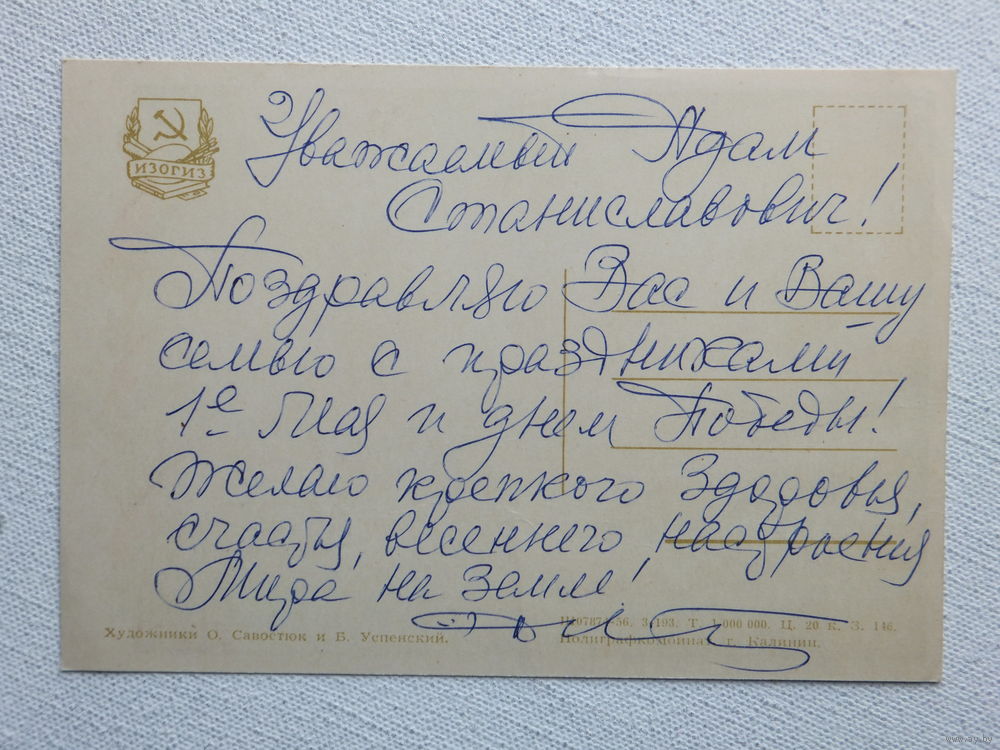 ИЗОГИЗ
Уважаемый Адам
Станиславович!
Поздравляю Вас и Вашу
семью с праздниками
1е Мая и днем Победы!
Желаю крепкого здоровья,
счастья, весеннего настроения
Мира на Земле!
Художники О. Савостюк и Б. Успенский.
56. З. 193. Т. 1 000 000. Ц. 20 к. З. 146.
Полиграфкомбинат г. Калинин.
www.ay.by